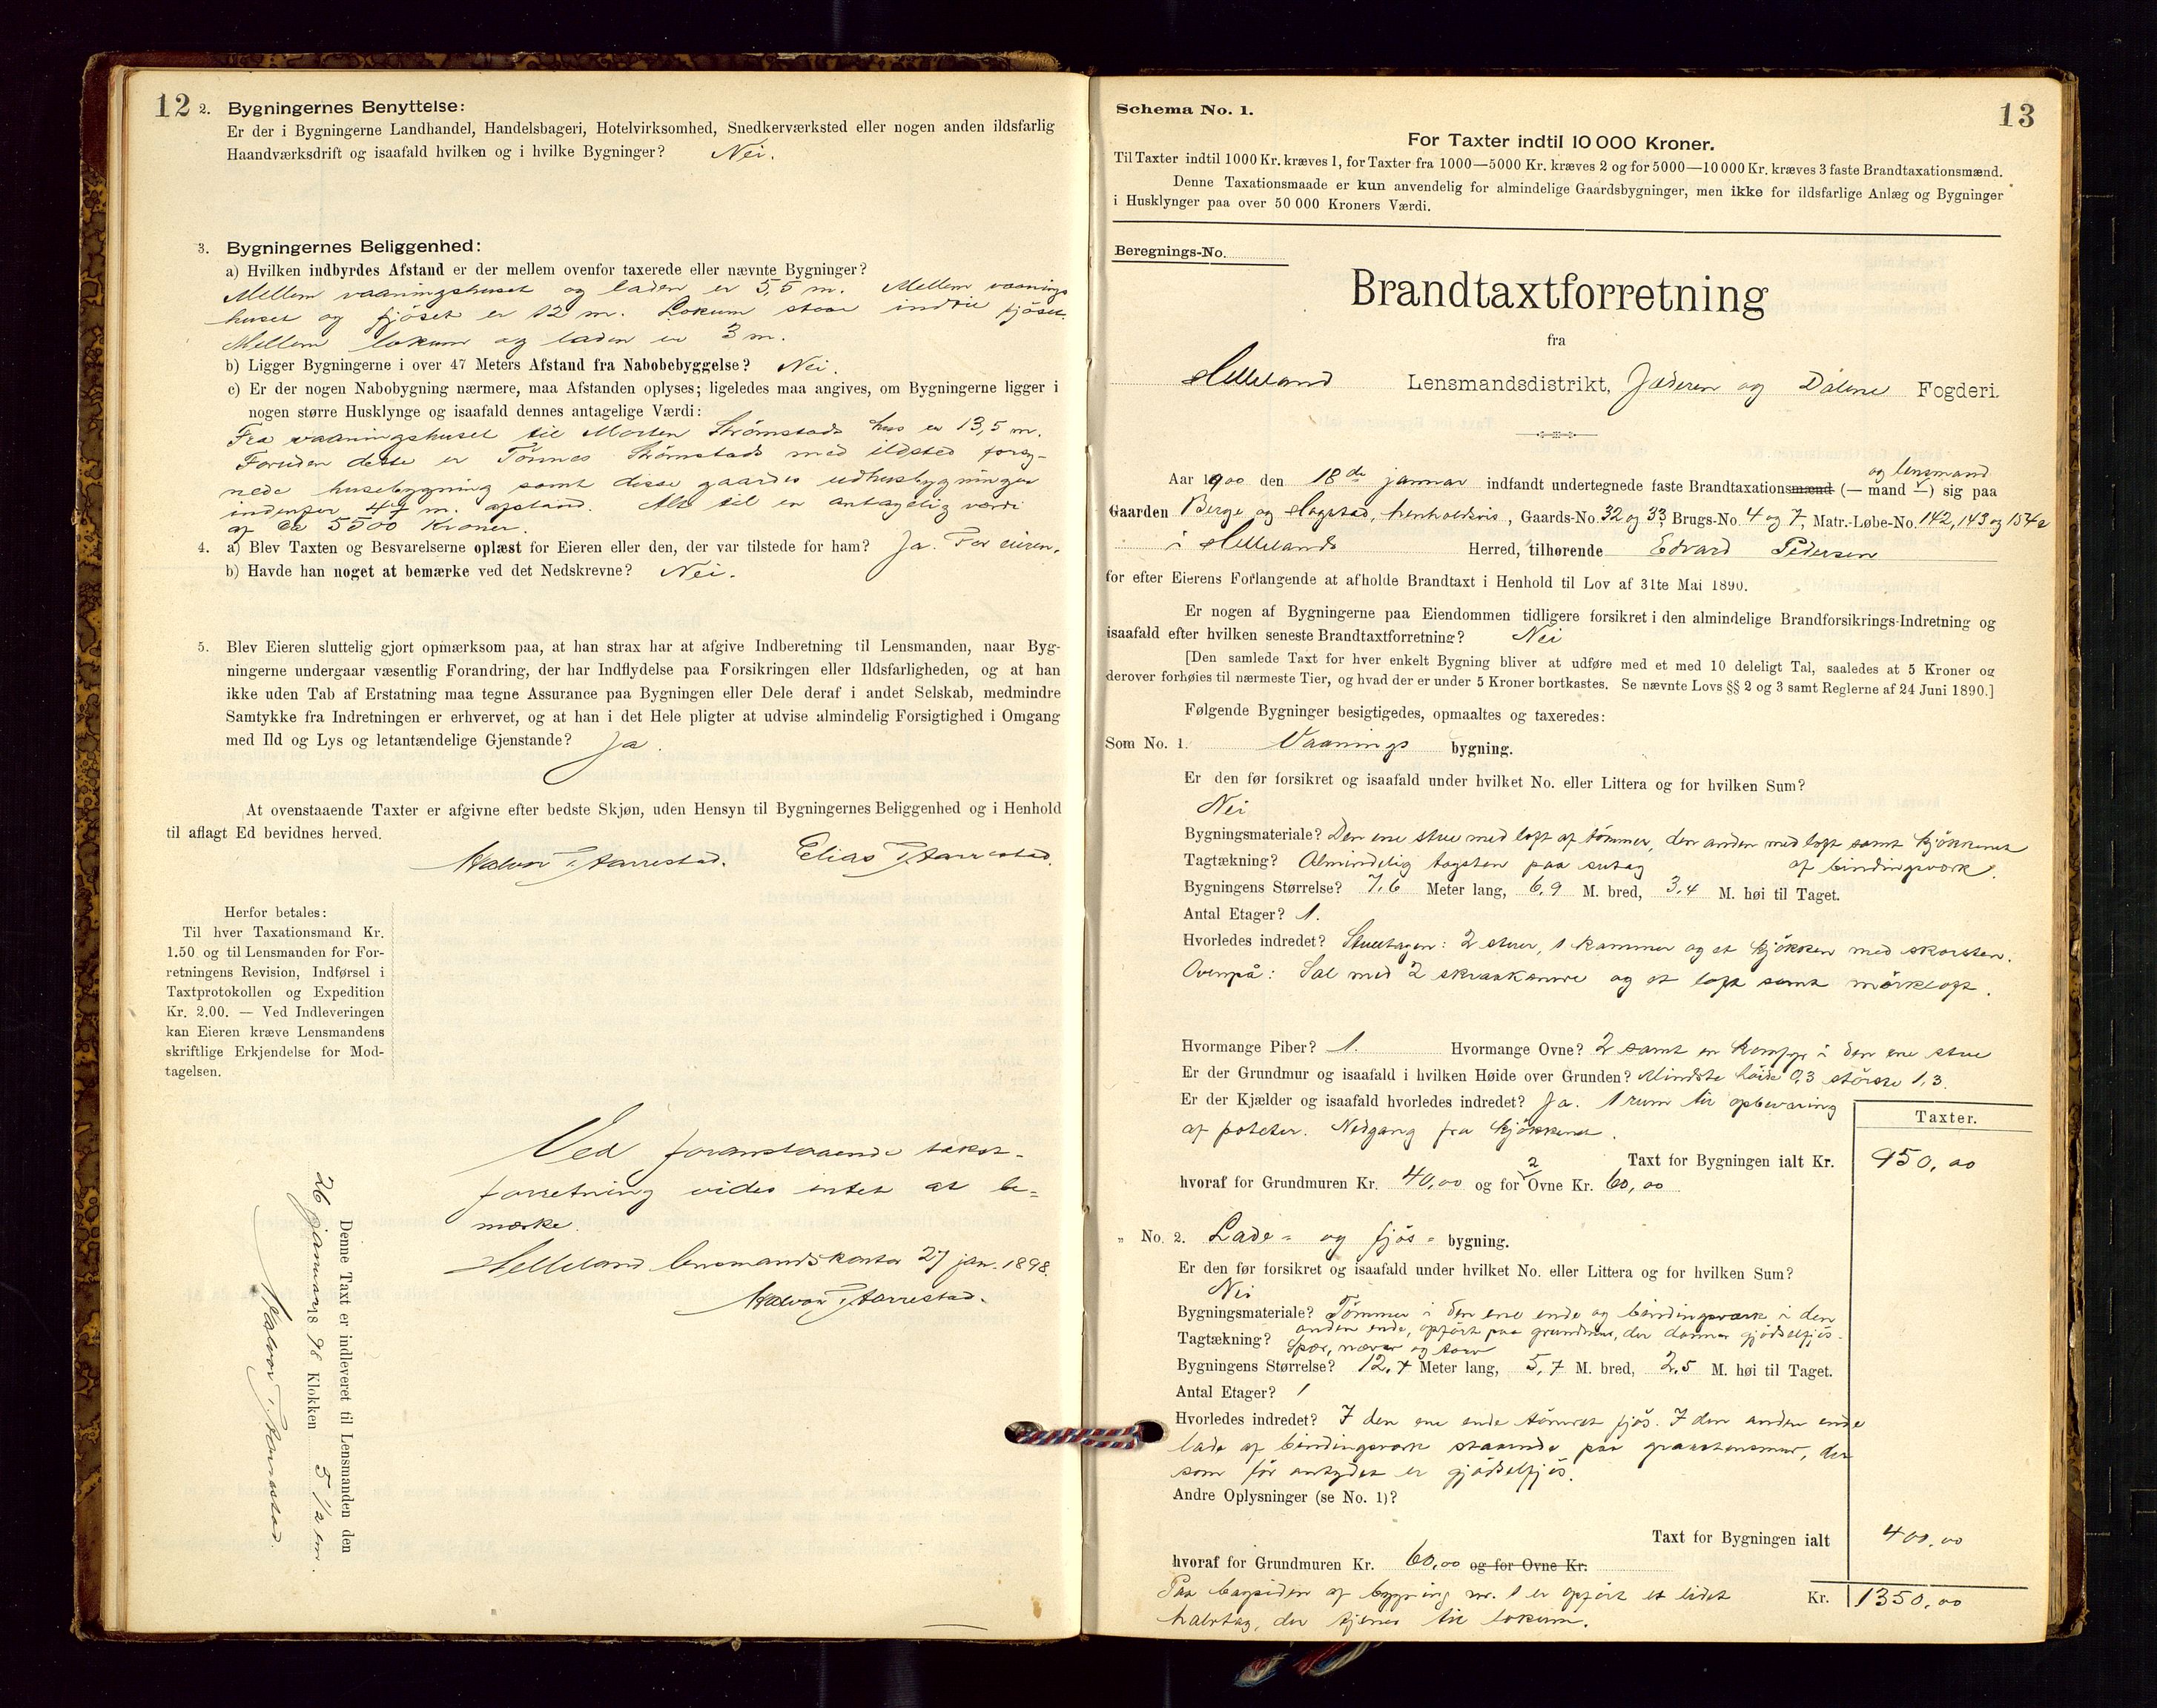 12
2. Bygningernes Benyttelse:
Er der i Bygningerne Landhandel, Handelsbageri, Hotelvirksomhed, Snedkerværksted eller nogen anden ildsfarlig
Haandværksdrift og isaafald hvilken og i hvilke Bygninger? Nei.
3. Bygningernes Beliggenhed:
a) Hvilken indbyrdes Afstand er der mellem ovenfor taxerede eller nævnte Bygninger?
Mellem vaaningshuset og laden er 5,5 m. Mellem vaanings
huset og fjöset er 12 m. Lokum staar indtil fjöset.
Mellem lokum og laden er 3 m.
b) Ligger Bygningerne i over 47 Meters Afstand fra Nabobebyggelse? Nei.
c) Er der nogen Nabobygning nærmere, maa Afstanden oplyses; ligeledes maa angives, om Bygningerne ligger i
nogen større Husklynge og isaafald dennes antagelige Værdi:
Fra vaaningshuset til Morten Strømstads hus er 13,5 m.
Foruden dette er Tönnes Strømstads med ildsted forsy-
nede husebygning samt disse gaardes udhusbygninger
indenfor 47 m. afstand. Alt til en antagelig værdi
af ca 5500 Kroner.
4. a) Blev Taxten og Besvarelserne oplæst for Eieren eller den, der var tilstede for ham? Ja. For eieren.
b) Havde han noget at bemærke ved det Nedskrevne? Nei.
5. Blev Eieren sluttelig gjort opmærksom paa, at han strax har at afgive Indberetning til Lensmanden, naar Byg-
ningerne undergaar væsentlig Forandring, der har Indflydelse paa Forsikringen eller Ildsfarligheden, og at han
ikke uden Tab af Erstatning maa tegne Assurance paa Bygningen eller Dele deraf i andet Selskab, medmindre
Samtykke fra Indretningen er erhvervet, og at han i det Hele pligter at udvise almindelig Forsigtighed i Omgang
med Ild og Lys og letantændelige Gjenstande? Ja.
At ovenstaaende Taxter er afgivne efter bedste Skjøn, uden Hensyn til Bygningernes Beliggenhed og i Henhold
til aflagt Ed bevidnes herved.
Halvor T. Aarrestad. Elias T. Aarrestad.
Herfor betales:
Til hver Taxationsmand Kr.
1.50 og til Lensmanden for For-
retningens Revision, Indførsel i
Taxtprotokollen og Expedition
Kr. 2.00. — Ved Indleveringen
kan Eieren kræve Lensmandens
skriftlige Erkjendelse for Mod-
tagelsen.
Ved foranstaaende takst-
forretning vides intet at be-
mærke.
Helleland lensmandskontor 27 jan. 1898.
Halvor T. Aarrestad.
Denne Taxt er indleveret til Lensmanden den
26 januar 1898 Klokken 5 1/2 em.
Halvor T. Aarrestad.
13
Schema No. 1.
For Taxter indtil 10 000 Kroner.
Til Taxter indtil 1000 Kr. kræves 1, for Taxter fra 1000—5000 Kr. kræves 2 og for 5000—10 000 Kr. kræves 3 faste Brandtaxationsmænd.
Denne Taxationsmaade er kun anvendelig for almindelige Gaardsbygninger, men ikke for ildsfarlige Anlæg og Bygninger
i Husklynger paa over 50 000 Kroners Værdi.
Beregnings-No.
Brandtaxtforretning
fra
Helleland Lensmandsdistrikt, Jæderen og Dalene Fogderi.
og lensmand
Aar 1900 den 18de januar indfandt undertegnede faste Brandtaxationsmænd (— mand —) sig paa
Gaarden Berge og Hogstad, henholdsvis, Gaards-No. 32 og 33 Brugs-No. 4 og 7, Matr.-Løbe-No. 142, 143 og 154a
i Hellelands Herred, tilhørende Edvard Pedersen
for efter Eierens Forlangende at afholde Brandtaxt i Henhold til Lov af 31te Mai 1890.
Er nogen af Bygningerne paa Eiendommen tidligere forsikret i den almindelige Brandforsikrings-Indretning og
isaafald efter hvilken seneste Brandtaxtforretning? Nei
[Den samlede Taxt for hver enkelt Bygning bliver at udføre med et med 10 deleligt Tal, saaledes at 5 Kroner og
derover forhøies til nærmeste Tier, og hvad der er under 5 Kroner bortkastes. Se nævnte Lovs §§ 2 og 3 samt Reglerne af 24 Juni 1890.]
Følgende Bygninger besigtigedes, opmaaltes og taxeredes:
Som No. 1. Vaanings bygning.
Er den før forsikret og isaafald under hvilket No. eller Littera og for hvilken Sum?
Nei
Bygningsmateriale? Den ene stue med loft af tömmer, den anden med loft samt kjökkenet
af bindingsverk.
Tagtækning? Almindelig tagsten paa sutag
Bygningens Størrelse? 7,6 Meter lang, 6,9 M. bred, 3,4 M. høi til Taget.
Antal Etager? 1.
Hvorledes indredet? Stueetagen: 2 stuer, 1 kammer og et kjökken med skorsten.
Ovenpå: Sal med 2 skraakamre og et loft samt mörkloft.
Hvormange Piber? 1. Hvormange Ovne? 2 samt en komfyr i den ene stue
Er der Grundmur og isaafald i hvilken Høide over Grunden? Mindste höide 0,3 störste 1,3.
Er der Kjælder og isaafald hvorledes indredet? Ja. 1 rum til opbevaring
af poteter. Nedgang fra kjökkenet.
Taxter.
Taxt for Bygningen ialt Kr. 950,00
hvoraf for Grundmuren Kr. 40,00 og for 2 Ovne Kr. 60,00
" No. 2. Lade- og fjös- bygning.
Er den før forsikret og isaafald under hvilket No. eller Littera og for hvilken Sum?
Nei
Bygningsmateriale? Tömmer i den ene ende og bindingsværk i den
anden ende, opfört paa grundmur, der danner gjödselfjös.
Tagtækning? Spær, næver og torv
Bygningens Størrelse? 12,7 Meter lang, 5,7 M. bred, 2,5 M. høi til Taget.
Antal Etager? 1
Hvorledes indredet? I den ene ende tömret fjös. I den anden ende
lade af bindingsverk staaende paa graastensmur, der
som för antydet er gjödselfjös.
Andre Oplysninger (se No. 1)?
Taxt for Bygningen ialt 400,00
hvoraf for Grundmuren Kr. 60,00 og for Ovne Kr.
Paa bagsiden af bygning nr. 1 er opfört et lidet
halvtag, der tjener til lokum.
Kr. 1350,00